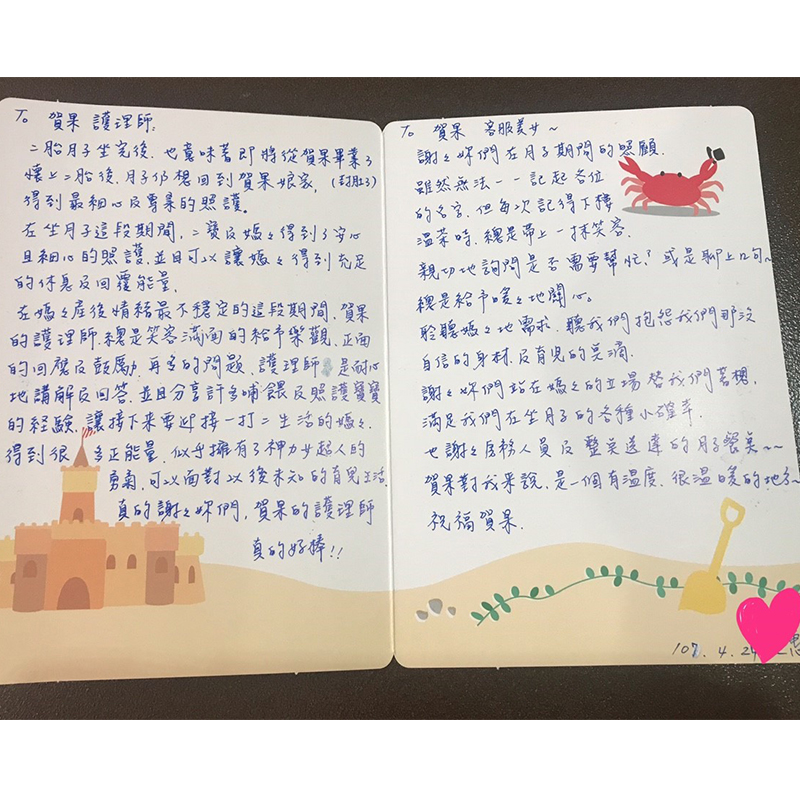 To 賀果 護理師:
二胎月子坐完後,也意味著即將從賀果畢業了
懷上二胎後,月子仍想回到賀果娘家,(封肚了)
得到最細心及專業的照護。
在坐月子這段期間,二寶及媽々得到了安心
且細心的照護,並且可以讓媽々得到充足
的休息及回覆能量.
在媽々產後情緒最不穩定的這段期間,賀果
的護理師,總是笑容滿面的給予樂觀、正面
的回應及鼓勵,再多的問題,護理師 是耐心
地講解及回答,並且分享許多哺餵及照護寶寶
的經驗,讓接下來要迎接一打二生活的媽々,
得到很多正能量,似乎擁有了神力女超人的
勇氣,可以面對以後未知的育兒生活
真的謝々妳們,賀果的護理師
真的好棒!!
To 賀果 客服美女~
謝々妳們在月子期間的照顧.
雖然無法一一記起各位
的名字,但每次記得下樓
溫茶時,總是帶上一抹笑容.
親切地詢問是否需要幫忙?或是聊上幾句~
總是給予暖々地關心。
聆聽媽々地需求,聽我們抱怨我們那沒
自信的身材,及育兒的
謝々妳們站在媽々的立場替我們著想,
滿足我們在坐月子的各種小確幸.
也謝々房務人員及 送達的月子餐點~~
賀果對我來說,是一個有溫度,很溫暖的地方~
祝福賀果.
4.24